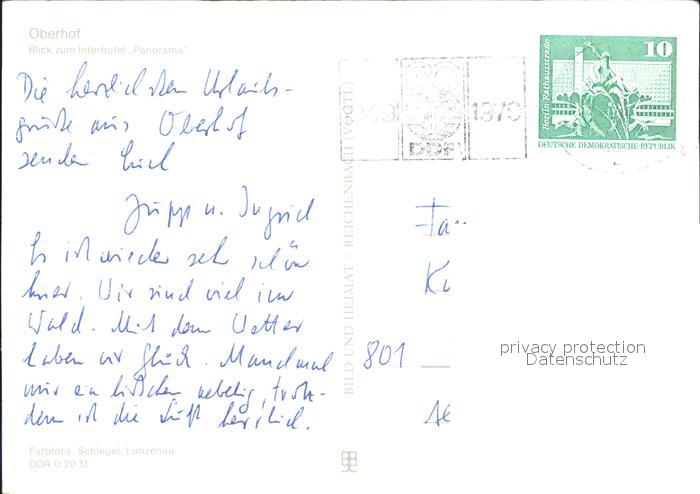 Oberhof
Blick zum Interhotel „Panorama"
Die herzlichsten Urlaubs-
grüße aus Oberhof
senden Euch
Jupp u. Ingrid
Es ist wieder sehr schön
hier. Wir sind viel im
Wald. Mit dem Wetter
haben wir Glück. Manchmal
nur ein bißchen nebelig, trotz-
dem ist die Luft herrlich.
Farbfoto: Schlegel, Lunzenau
DDR 0,20 M
BILD UND HEIMAT · REICHENBACH (VOGTL)
1979
DDR
10
Berlin, Rathausstraße
DEUTSCHE DEMOKRATISCHE REPUBLIK
Fa
Ku
801
privacy protection
Datenschutz